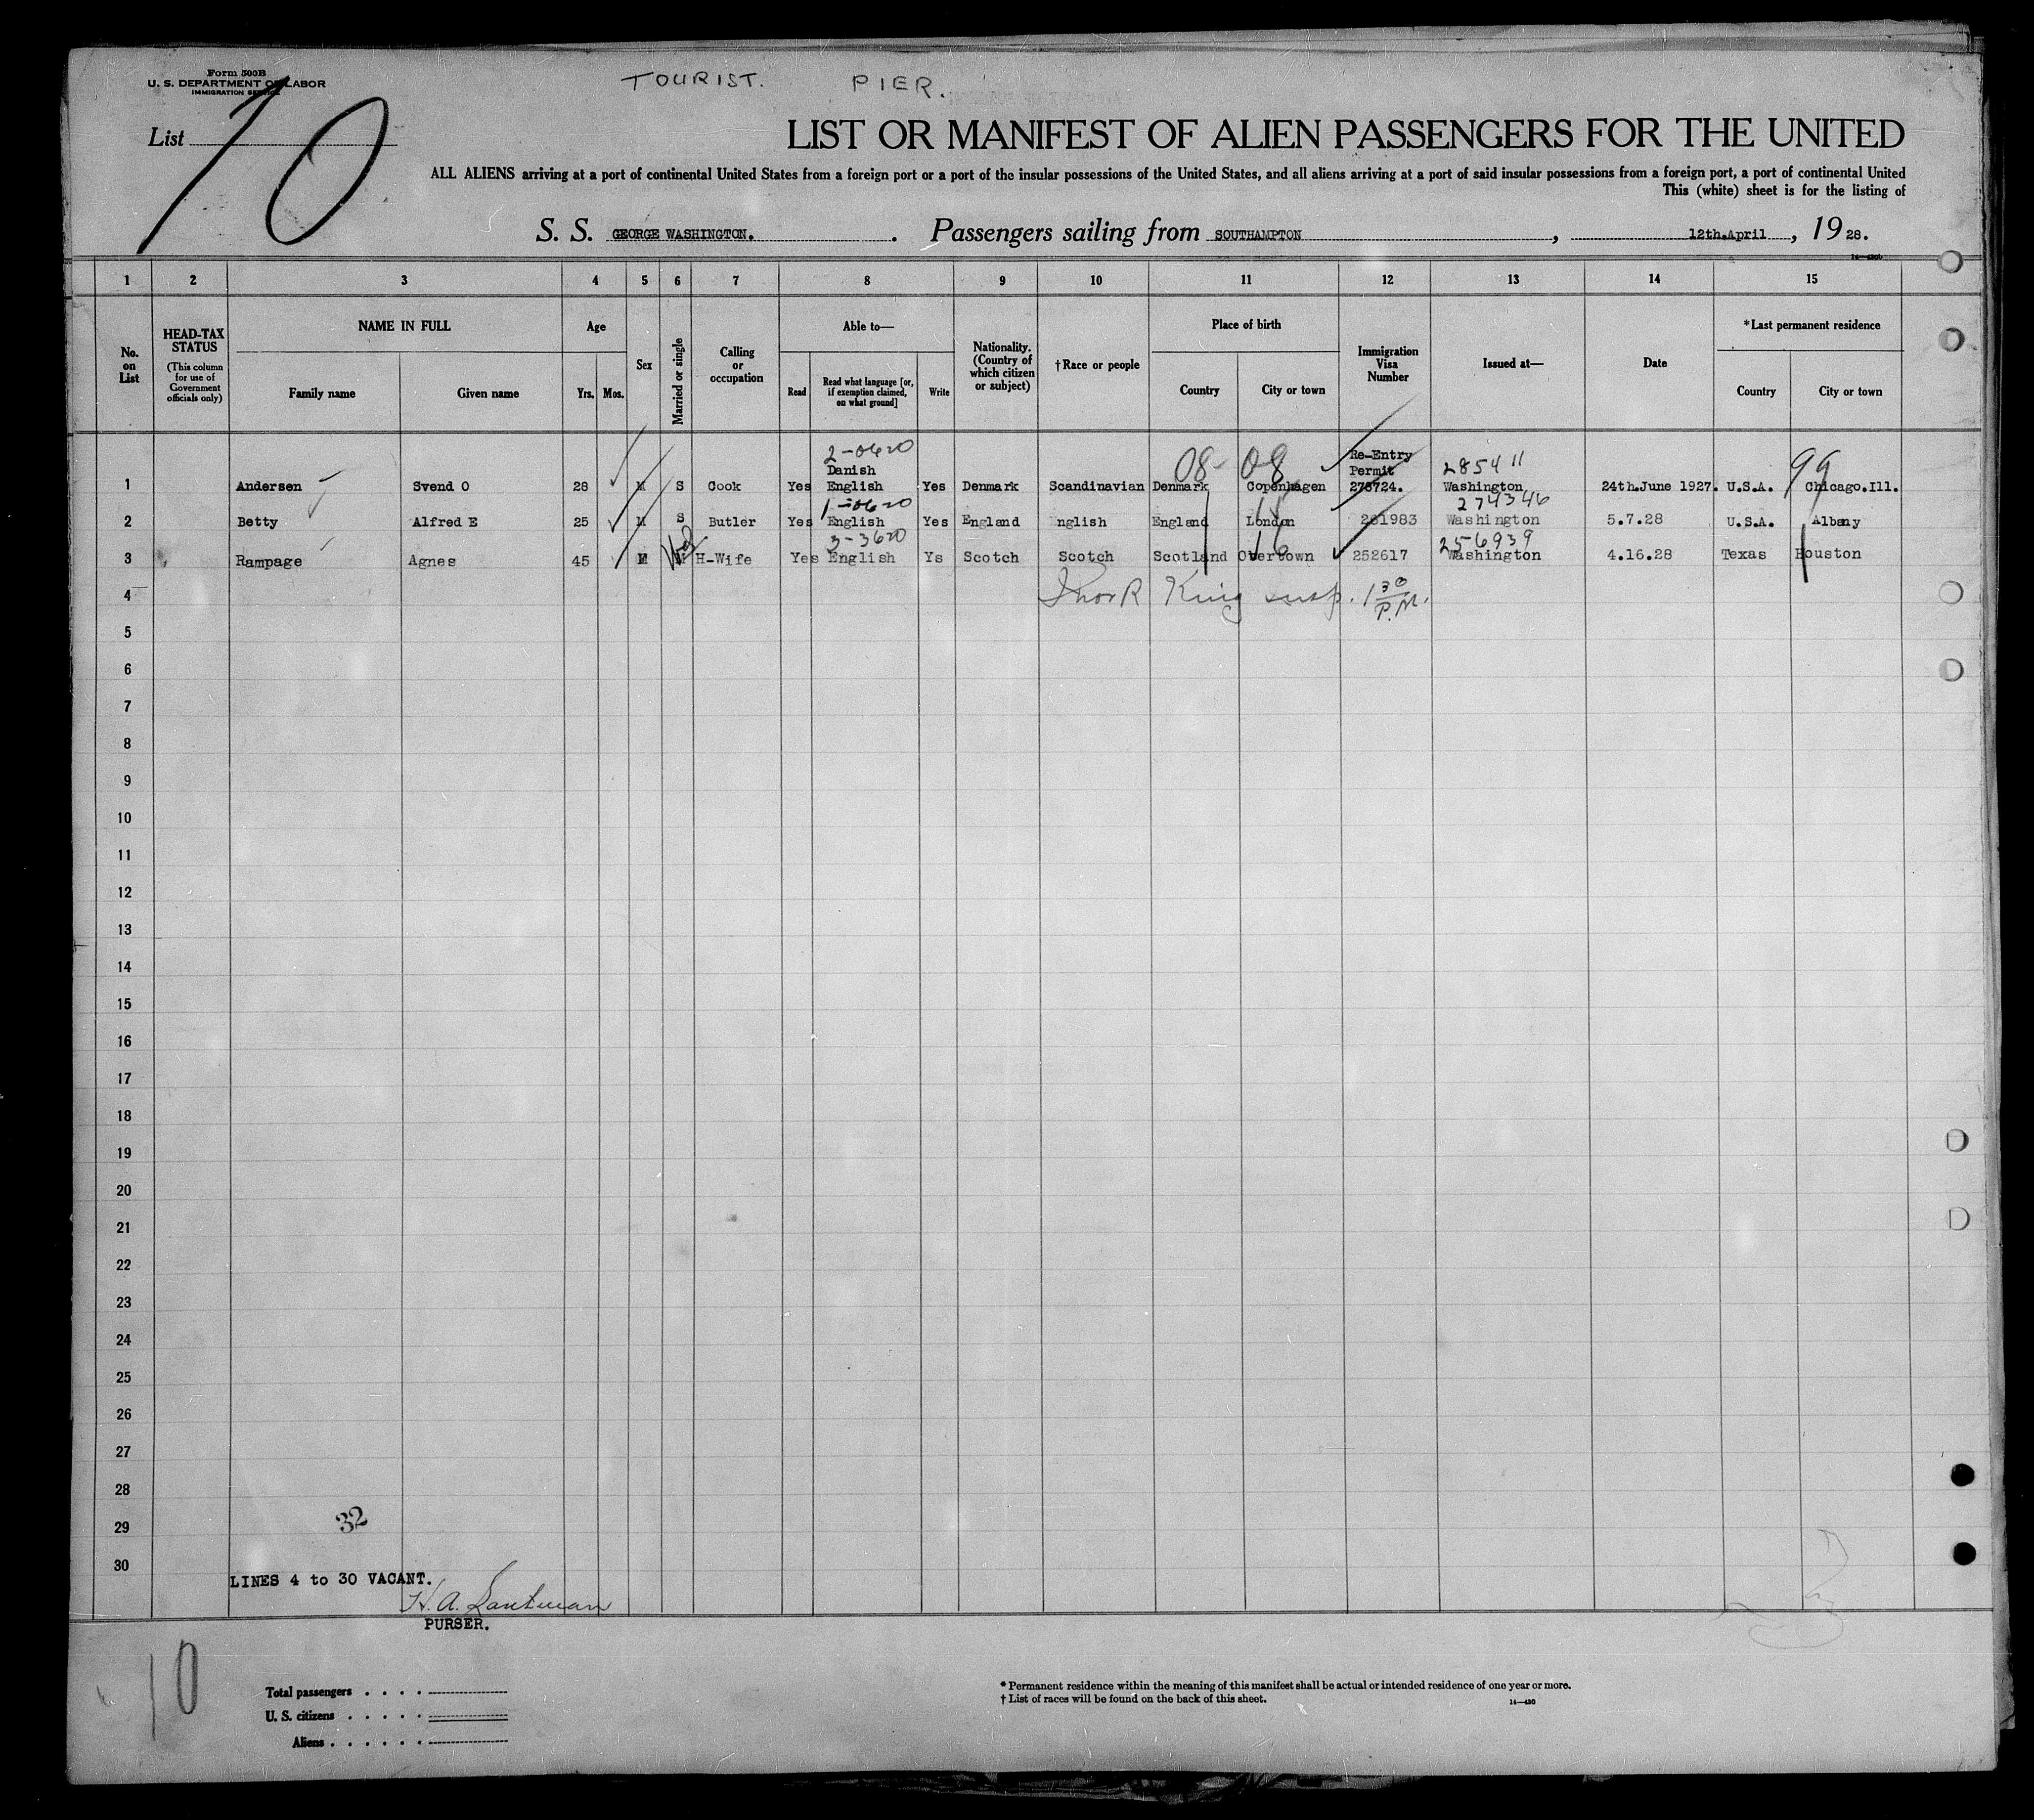 Form 500B
U. S. DEPARTMENT OF LABOR
IMMIGRATION SERVICE
TOURIST. PIER.
List 10
LIST OR MANIFEST OF ALIEN PASSENGERS FOR THE UNITED
ALL ALIENS arriving at a port of continental United States from a foreign port or a port of the insular possessions of the United States, and all aliens arriving at a port of said insular possessions from a foreign port, a port of continental United
This (white) sheet is for the listing of
S. S. GEORGE WASHINGTON. Passengers sailing from SOUTHAMPTON, 12th.April, 1928.
1 2 3 4 5 6 7 8 9 10 11 12 13 14 15
No. on List
HEAD-TAX STATUS (This column for use of Government officials only)
NAME IN FULL
Family name Given name
Age
Yrs. Mos.
Sex
Married or single
Calling or occupation
Able to—
Read
Read what language [or, if exemption claimed, on what ground]
Write
Nationality. (Country of which citizen or subject)
†Race or people
Place of birth
Country City or town
Immigration Visa Number
Issued at—
Date
*Last permanent residence
Country City or town
2-0620
Danish 08 08 Re-Entry Permit 285411 99
1 Andersen Svend O 28 M S Cook Yes English Yes Denmark Scandinavian Denmark Copenhagen 278724. Washington 24th.June 1927. U.S.A. Chicago.Ill.
1-0620 274346
2 Betty Alfred E 25 M S Butler Yes English Yes England nglish England London 261983 Washington 5.7.28 U.S.A. Albany
3-3620 16 256939
3 Rampage Agnes 45 M H-Wife Yes English Ys Scotch Scotch Scotland Overtown 252617 Washington 4.16.28 Texas Houston
4 King insp. 1 30 P.M.
5
6
7
8
9
10
11
12
13
14
15
16
17
18
19
20
21
22
23
24
25
26
27
28
29
32
30
LINES 4 to 30 VACANT.
H. A.
PURSER.
10
Total passengers
U. S. citizens
Aliens
* Permanent residence within the meaning of this manifest shall be actual or intended residence of one year or more.
† List of races will be found on the back of this sheet.
14—430